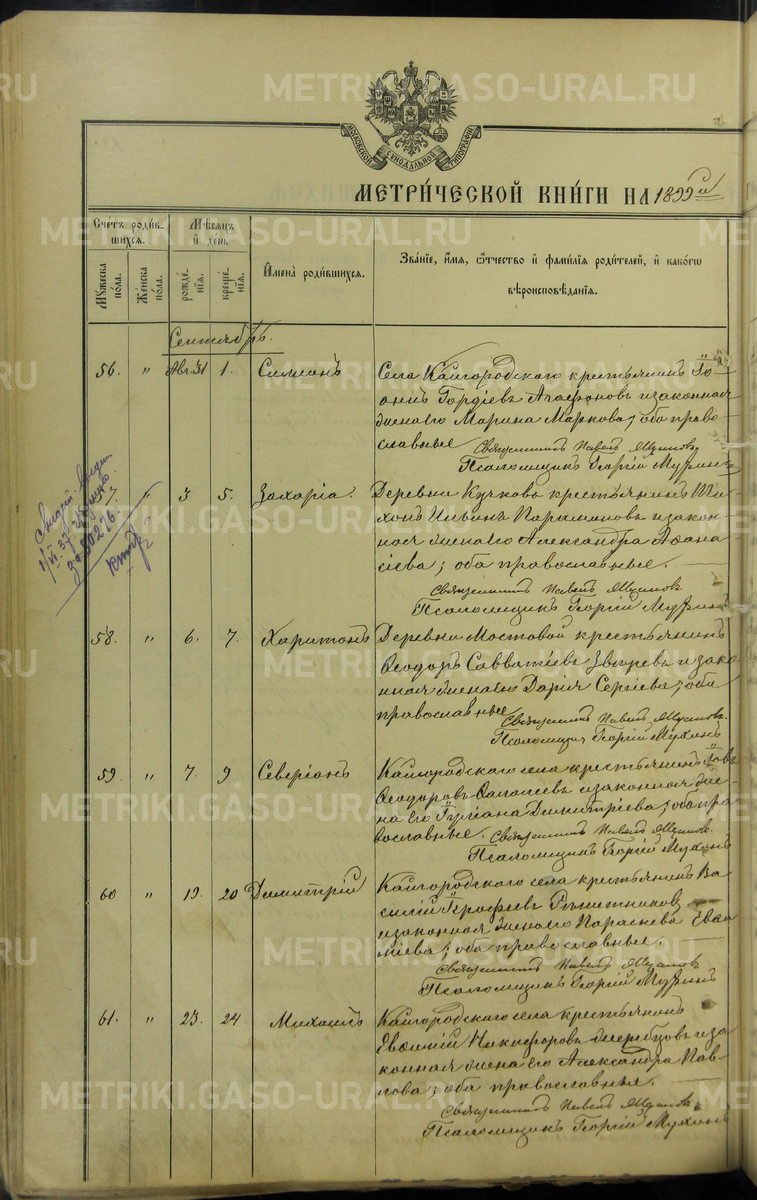 METRIKI.GASO-URAL.RU
МОСКОВСКОЙ СѴНОДАЛЬНОЙ ТИПОГРАФІИ
МЕТРИ́ЧЕСКОЙ КНИ́ГИ НА 1899й
Сче́тъ роди́в-
шихся.
Мꙋ́жеска по́ла.
Же́нска по́ла.
Мѣ́сяцъ и҆ день
рожде́-
нїя.
креще́-
нїя.
И҆мена̀ роди́вшихся.
Зва́нїе, и҆́мя, ѻ҆́тчество и҆ фами́лїя роди́телей, и҆ како́гѡ
вѣроисповѣ́данїя.
Сентябрь.
56. " Авг 31 1. Симеонъ
Села Кайгородскаго крестьянинъ Іо-
аннъ Гордіевъ Агафоновъ и законная
жена его Марина Маркова; оба право-
славные
Священникъ Павелъ
Псаломщикъ Георгій Мухинъ
57. " 3 5. Захарія.
Деревни Кучковъ крестьянинъ Ти-
хонъ Ильинъ Парамоновъ и закон-
ная жена его Александра Аѳана-
сіева; оба православные.
Священникъ Павелъ
Псаломщикъ Георгій Мухинъ
58. " 6. 7. Харитонъ
Деревни Мостовой крестьянинъ
Ѳеодоръ Савватіевъ Звѣревъ и зако-
нная жена его Дарія Сергіева; оба
православные
Священникъ Павелъ
Псаломщикъ Георгій Мухинъ
59. " 7. 9 Северіанъ
Кайгородскаго села крестьянинъ Іовъ
Ѳеодоровъ и законная же-
на его Іуліана Димитріева; оба пра-
вославные. Священникъ Павелъ
Псаломщикъ Георгій Мухинъ
60 " 19. 20 Димитрій
Кайгородскаго села крестьянинъ Ва-
силій Іероѳеевъ Рѣшетниковъ
и законная жена его Параскева Евѳи-
міева; оба православные.
Священникъ Павелъ
Псаломщикъ Георгій Мухинъ
61. " 23. 24 Михаилъ
Кайгородскаго села крестьянинъ
Евѳимій Никифоровъ Жеребцовъ и за-
конная жена его Александра Пав-
лова; оба православные.
Священникъ Павелъ
Псаломщикъ Георгій Мухинъ